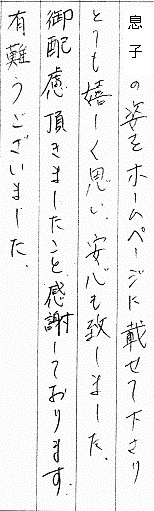 息子の姿をホームページに載せて下さり
とても嬉しく思い、安心も致しました。
御配慮頂きましたこと感謝しております。
有難うございました。